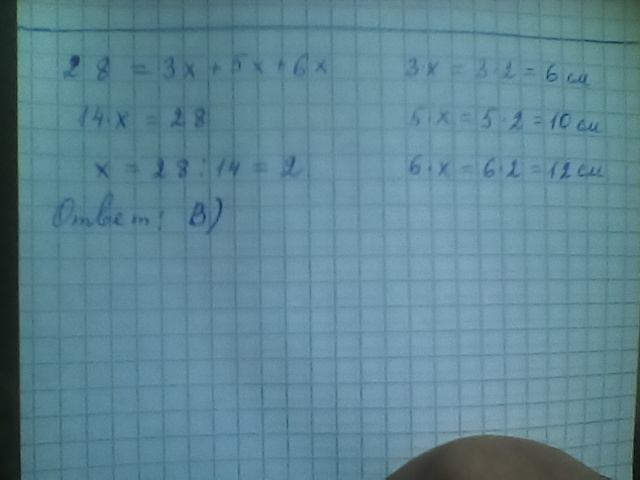 28 = 3x + 5x + 6x
14·x = 28
x = 28 : 14 = 2
Ответ: В)
3·x = 3·2 = 6 см
5·x = 5·2 = 10 см
6·x = 6·2 = 12 см